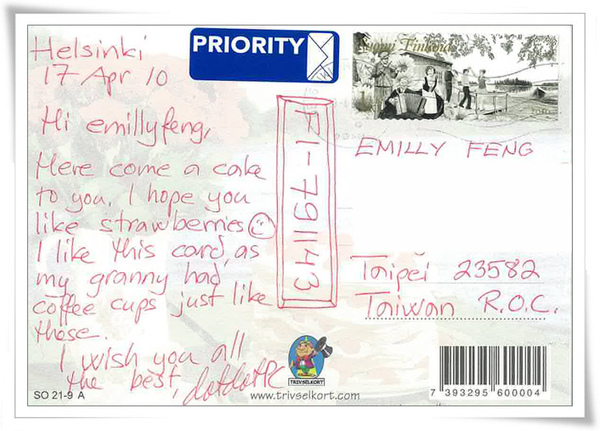 Helsinki
17 Apr 10
Hi emillyfeng,
Here come a cake
to you. I hope you
like strawberries
I like this card, as
my granny had
coffee cups just like
those.
I wish you all
the best, dotdotPC
PRIORITY
FI-791143
Suomi Finland
EMILLY FENG
Taipei 23582
Taiwan R.O.C.
TRIVSELKORT
www.trivselkort.com
SO 21-9 A
7 393295 600004